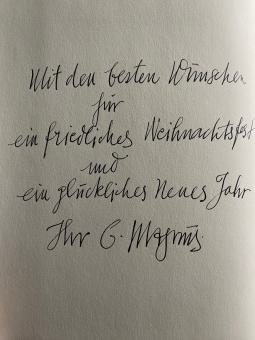 Mit den besten Wünschen
für
ein friedliches Weihnachtsfest
und
ein glückliches Neues Jahr
Ihr G. Magnus